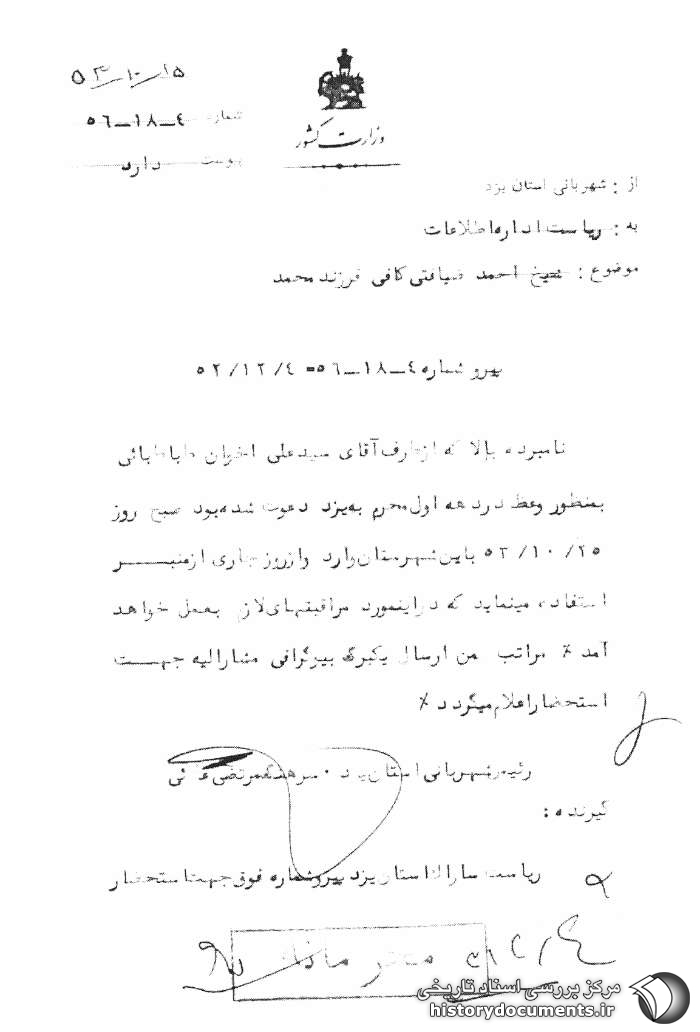 وزارت کشور
۱۵-۱۰-۵۳
شماره ٤ـ١٨ـ٥٦
پیوست دارد
از : شهربانی استان یزد
به : ریاست اداره اطلاعات
موضوع : شیخ احمد ضیافتی کافی فرزند محمد
پیرو شماره ٤ـ١٨ـ٥٦ـ ٥٢/١٢/٤
نامبرده بالا که ازطرف آقای سیدعلی اخوان طباطبائی
بمنظور وعظ در دهه اول محرم به یزد دعوت شده بود صبح روز
باین شهرستان وارد وازروز جاری ازمنبـــر
استفاده مینماید که دراینمورد مراقبتهای لازم بعمل خواهد
آمد ٪ مراتب ضمن ارسال یکبرگ بیوگرافی مشارالیه جهـــت
استحضار اعلام میگردد ٪
رئیس شهربانی استان یزد ۰ سرهنگ مرتضی
گیرنده :
ریاست ساواک استان یزد پیرو شماره فوق جهت استحضار
مرکز بررسی اسناد تاریخی
historydocuments.ir